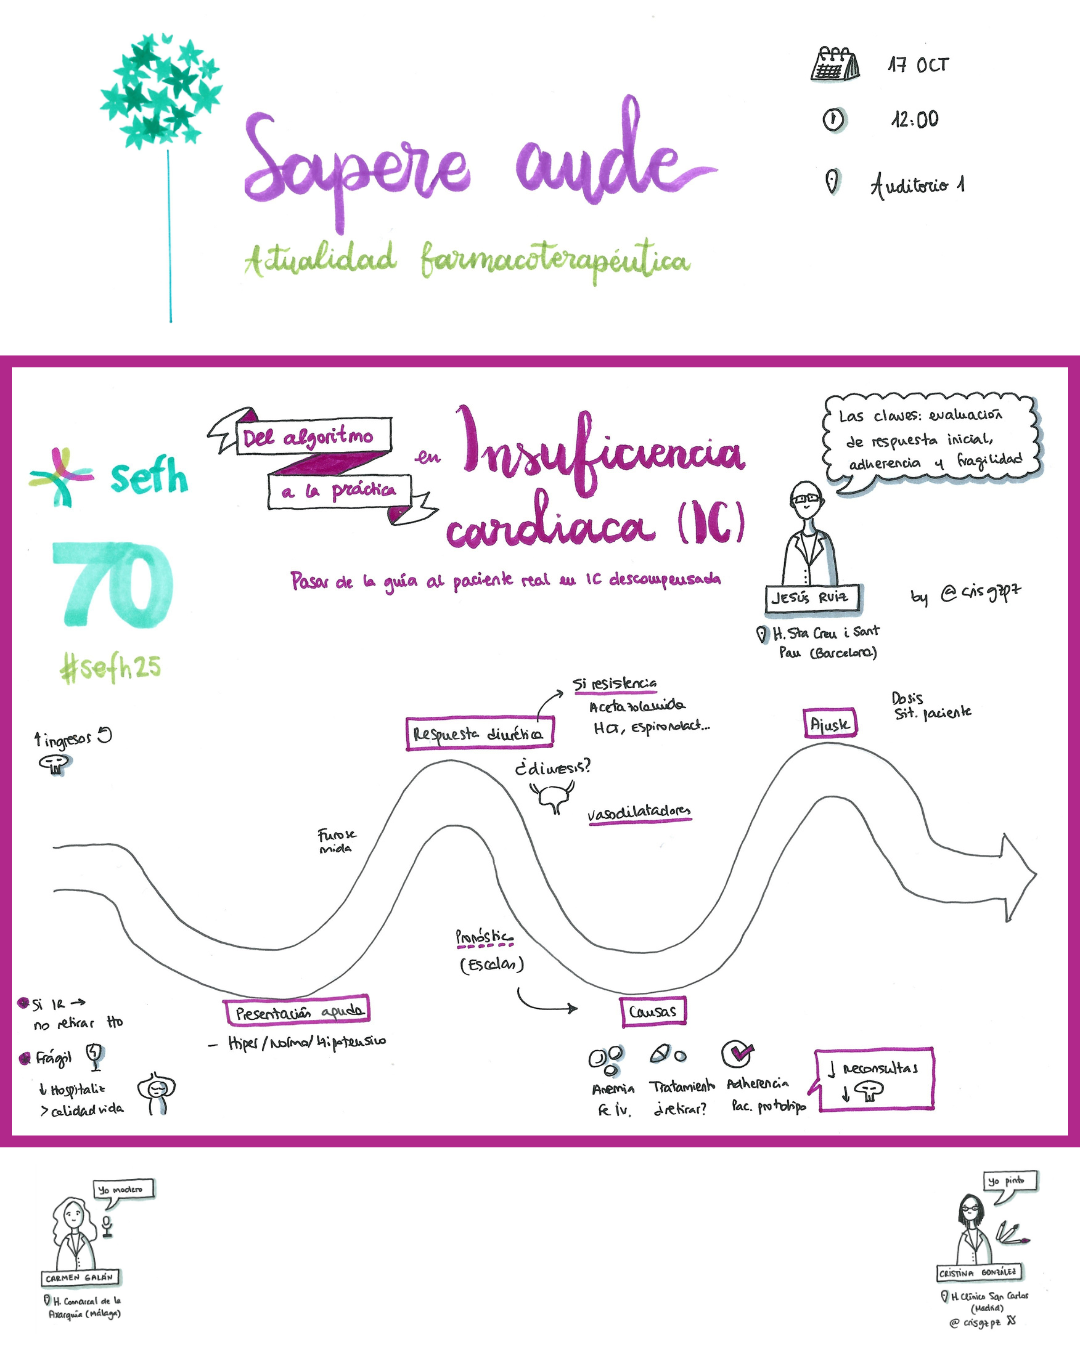 Sapere aude
Actualidad farmacoterapéutica
17 OCT
12:00
Auditorio 1
sefh
70
#sefh25
Del algoritmo
a la práctica
en Insuficiencia
cardiaca (IC)
Pasar de la guía al paciente real en IC descompensada
Las claves: evaluación
de respuesta inicial,
adherencia y fragilidad
JESÚS RUIZ
H. Sta Creu i Sant
Pau (Barcelona)
by @crisgzpz
↑ ingresos
Furose
mida
Respuesta diurética
Si resistencia
Acetazolamida
HCT, Espironolact...
¿diuresis?
vasodilatadores
Ajuste
Dosis
Sit. paciente
Pronóstic
(Escalas)
Si IR →
no retirar tto
Frágil
↓ Hospitaliz
> calidad vida
Presentación aguda
- Hiper/Normo/Hipotensivo
Causas
Anemia
Fe iv.
Tratamiento
¿retirar?
Adherencia
Pac. prototipo
↓ Reconsultas
↓
Yo modero
CARMEN GALÁN
H. Comarcal de la
Axarquía (Málaga)
Yo pinto
CRISTINA GONZÁLEZ
H. Clínico San Carlos
(Madrid)
@crisgzpz